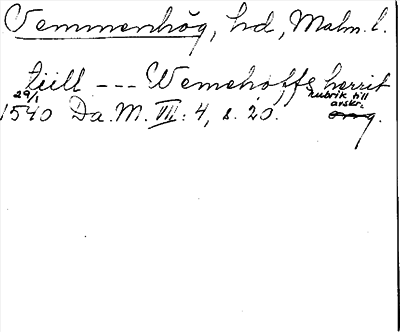 Vemmenhög, hd, Malm. l.
tiill --- Wemehoffs herrit
29/1 rubrik till
1540 Da. M. III: 4, s. 20. avskr.